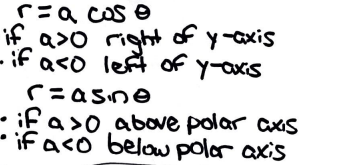 r = a cos θ
if a>0 right of y-axis
· if a<0 left of y-axis
r = a sin θ
· if a>0 above polar axis
· if a<0 below polar axis